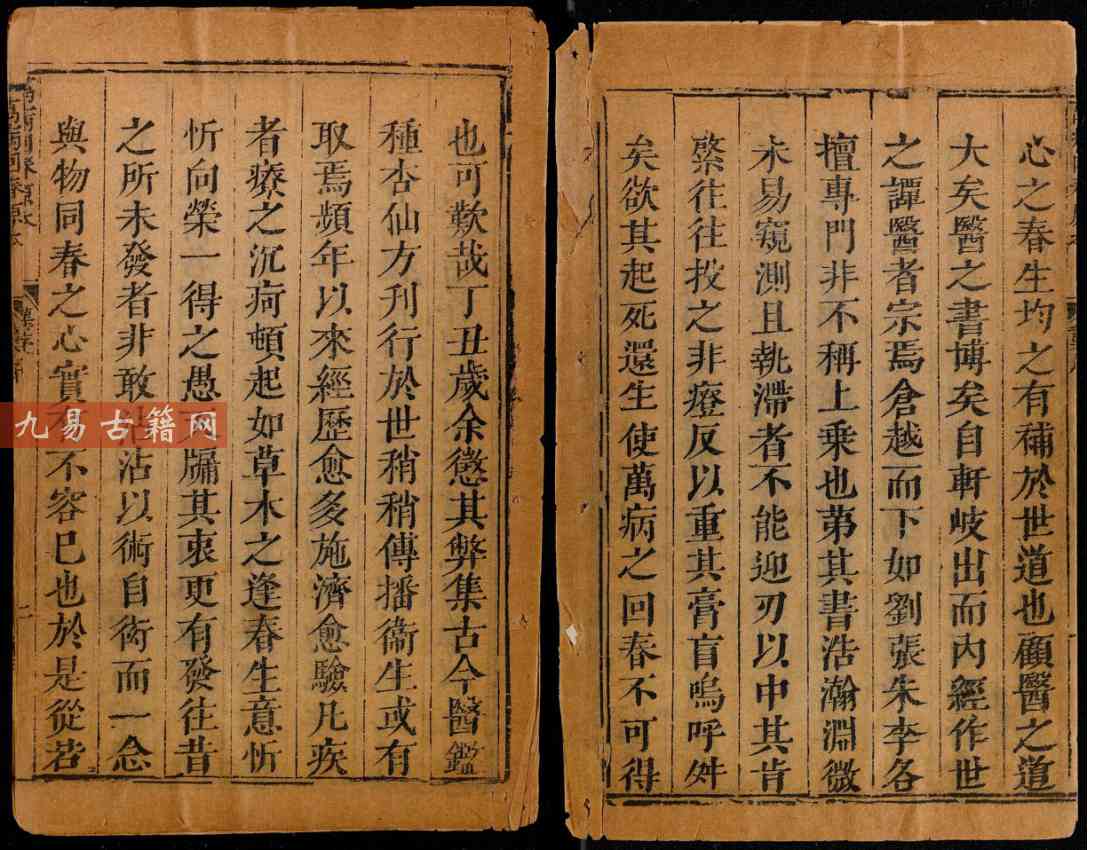 心之春生均之有補於世道也顧醫之道
大矣醫之書博矣自軒岐出而內經作世
之譚醫者宗焉倉越而下如劉張朱李各
擅專門非不稱上乘也苐其書浩瀚淵微
未易窺測且執滯者不能迎刃以中其肯
綮往往投之非瘥反以重其膏盲嗚呼舛
矣欲其起死還生使萬病之回春不可得
也可歎哉丁丑歲余懲其弊集古今醫鑑
種杏仙方刊行於世稍稍傳播衞生或有
取焉頻年以來經歷愈多施濟愈驗凡疾
者療之沉疴頓起如草木之逢春生意忻
忻向榮一得之愚 牖其衷更有發往昔
之所未發者非敢沾沾以術自衒而一念
與物同春之心實 不容已也於是從若
萬病回春原本
九易古籍网